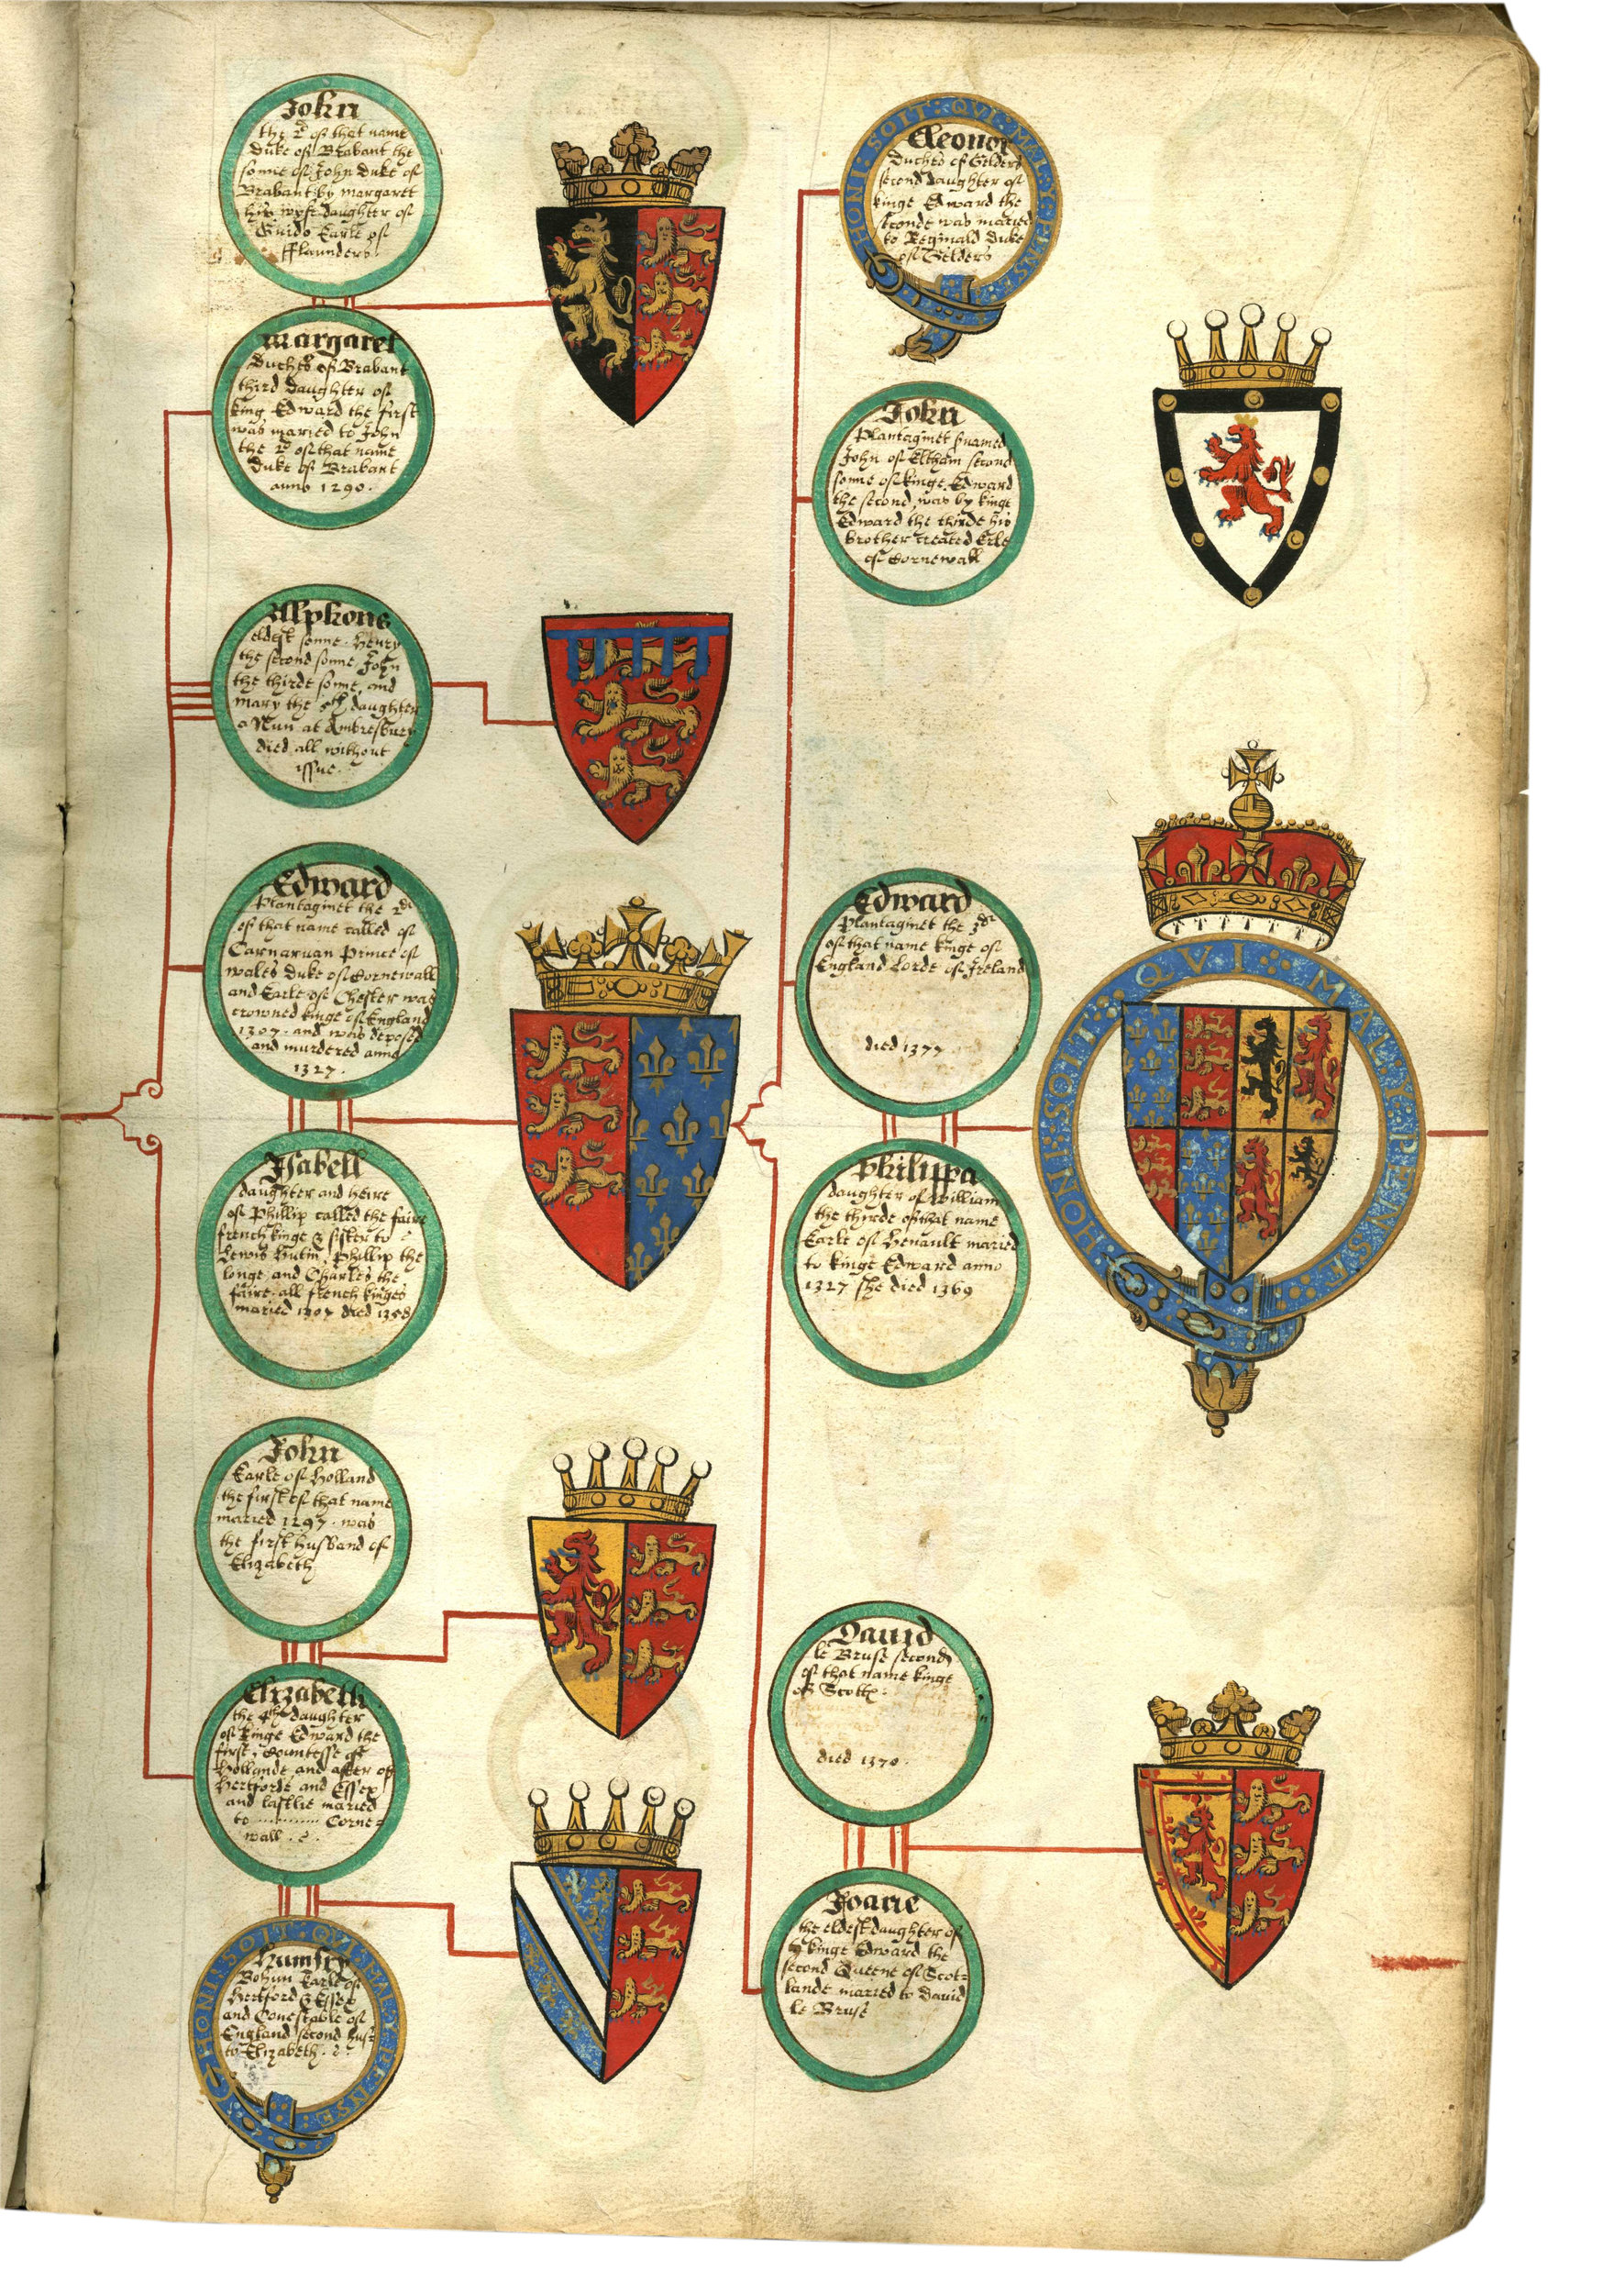 John
the 2d of that name
Duke of Brabant the
sonne of John Duke of
Brabant by margaret
his wyfe daughter of
Guido Earle of
Flaunders.
margaret
Duches of Brabant
third daughter of
king Edward the first
was maried to John
the 2d of that name
Duke of Brabant
anno 1290.
Alphons
eldest sonne. Henry
the second sonne. John
the thirde sonne, and
mary the 5th daughter
a Nun at Ambresbury
died all without
issue.
Edward
Plantaginet the 2d
of that name called of
Carnaruan Prince of
wales Duke of Cornewall
and Earle of Chester was
crowned kinge of England
1307. and was deposed
and murdered anno
1327.
Isabell
daughter and heire
of Phillip called the faire
french kinge & sister to
Lewis Hutin, Phillip the
longe and Charles the
faire. all french kinges
maried 1307 died 1358
John
Earle of Holland
the first of that name
maried 1297. was
the first husband of
Elizabeth
Elizabeth
the 4th daughter
of kinge Edward the
first, Countesse of
Hollande and after of
Hertforde and Essex
and lastlie maried
to ............ Corne=
wall.
HONI: SOIT: QVI: MAL: Y: PENSE
Humfry
Bohun Earle of
Hertford & Essex
and Conestable of
England second hus=
to Elizabeth.
HONI: SOIT: QVI: MAL: Y: PENS
Eleonor
Duches of Gelders
second daughter of
kinge Edward the
seconde was maried
to Reginald Duke
of Gelders
John
Plantaginet surnamed
John of Eltham second
sonne of kinge Edward
the second, was by kinge
Edward the thirde his
brother created Erle
of Cornewall
Edward
Plantaginet the 3d
of that name kinge of
England Lorde of Ireland
died 1377
HONI: SOIT: QVI MAL: Y: PENSE
philippa
daughter of william
the thirde of that name
Earle of Henault maried
to kinge Edward anno
1327 she died 1369
Dauid
le Bruse second
of that name kinge
of Scott
died 1370.
Joane
the eldest daughter of
kinge Edward the
second Queene of Scot=
lande maried to Dauid
le Bruse